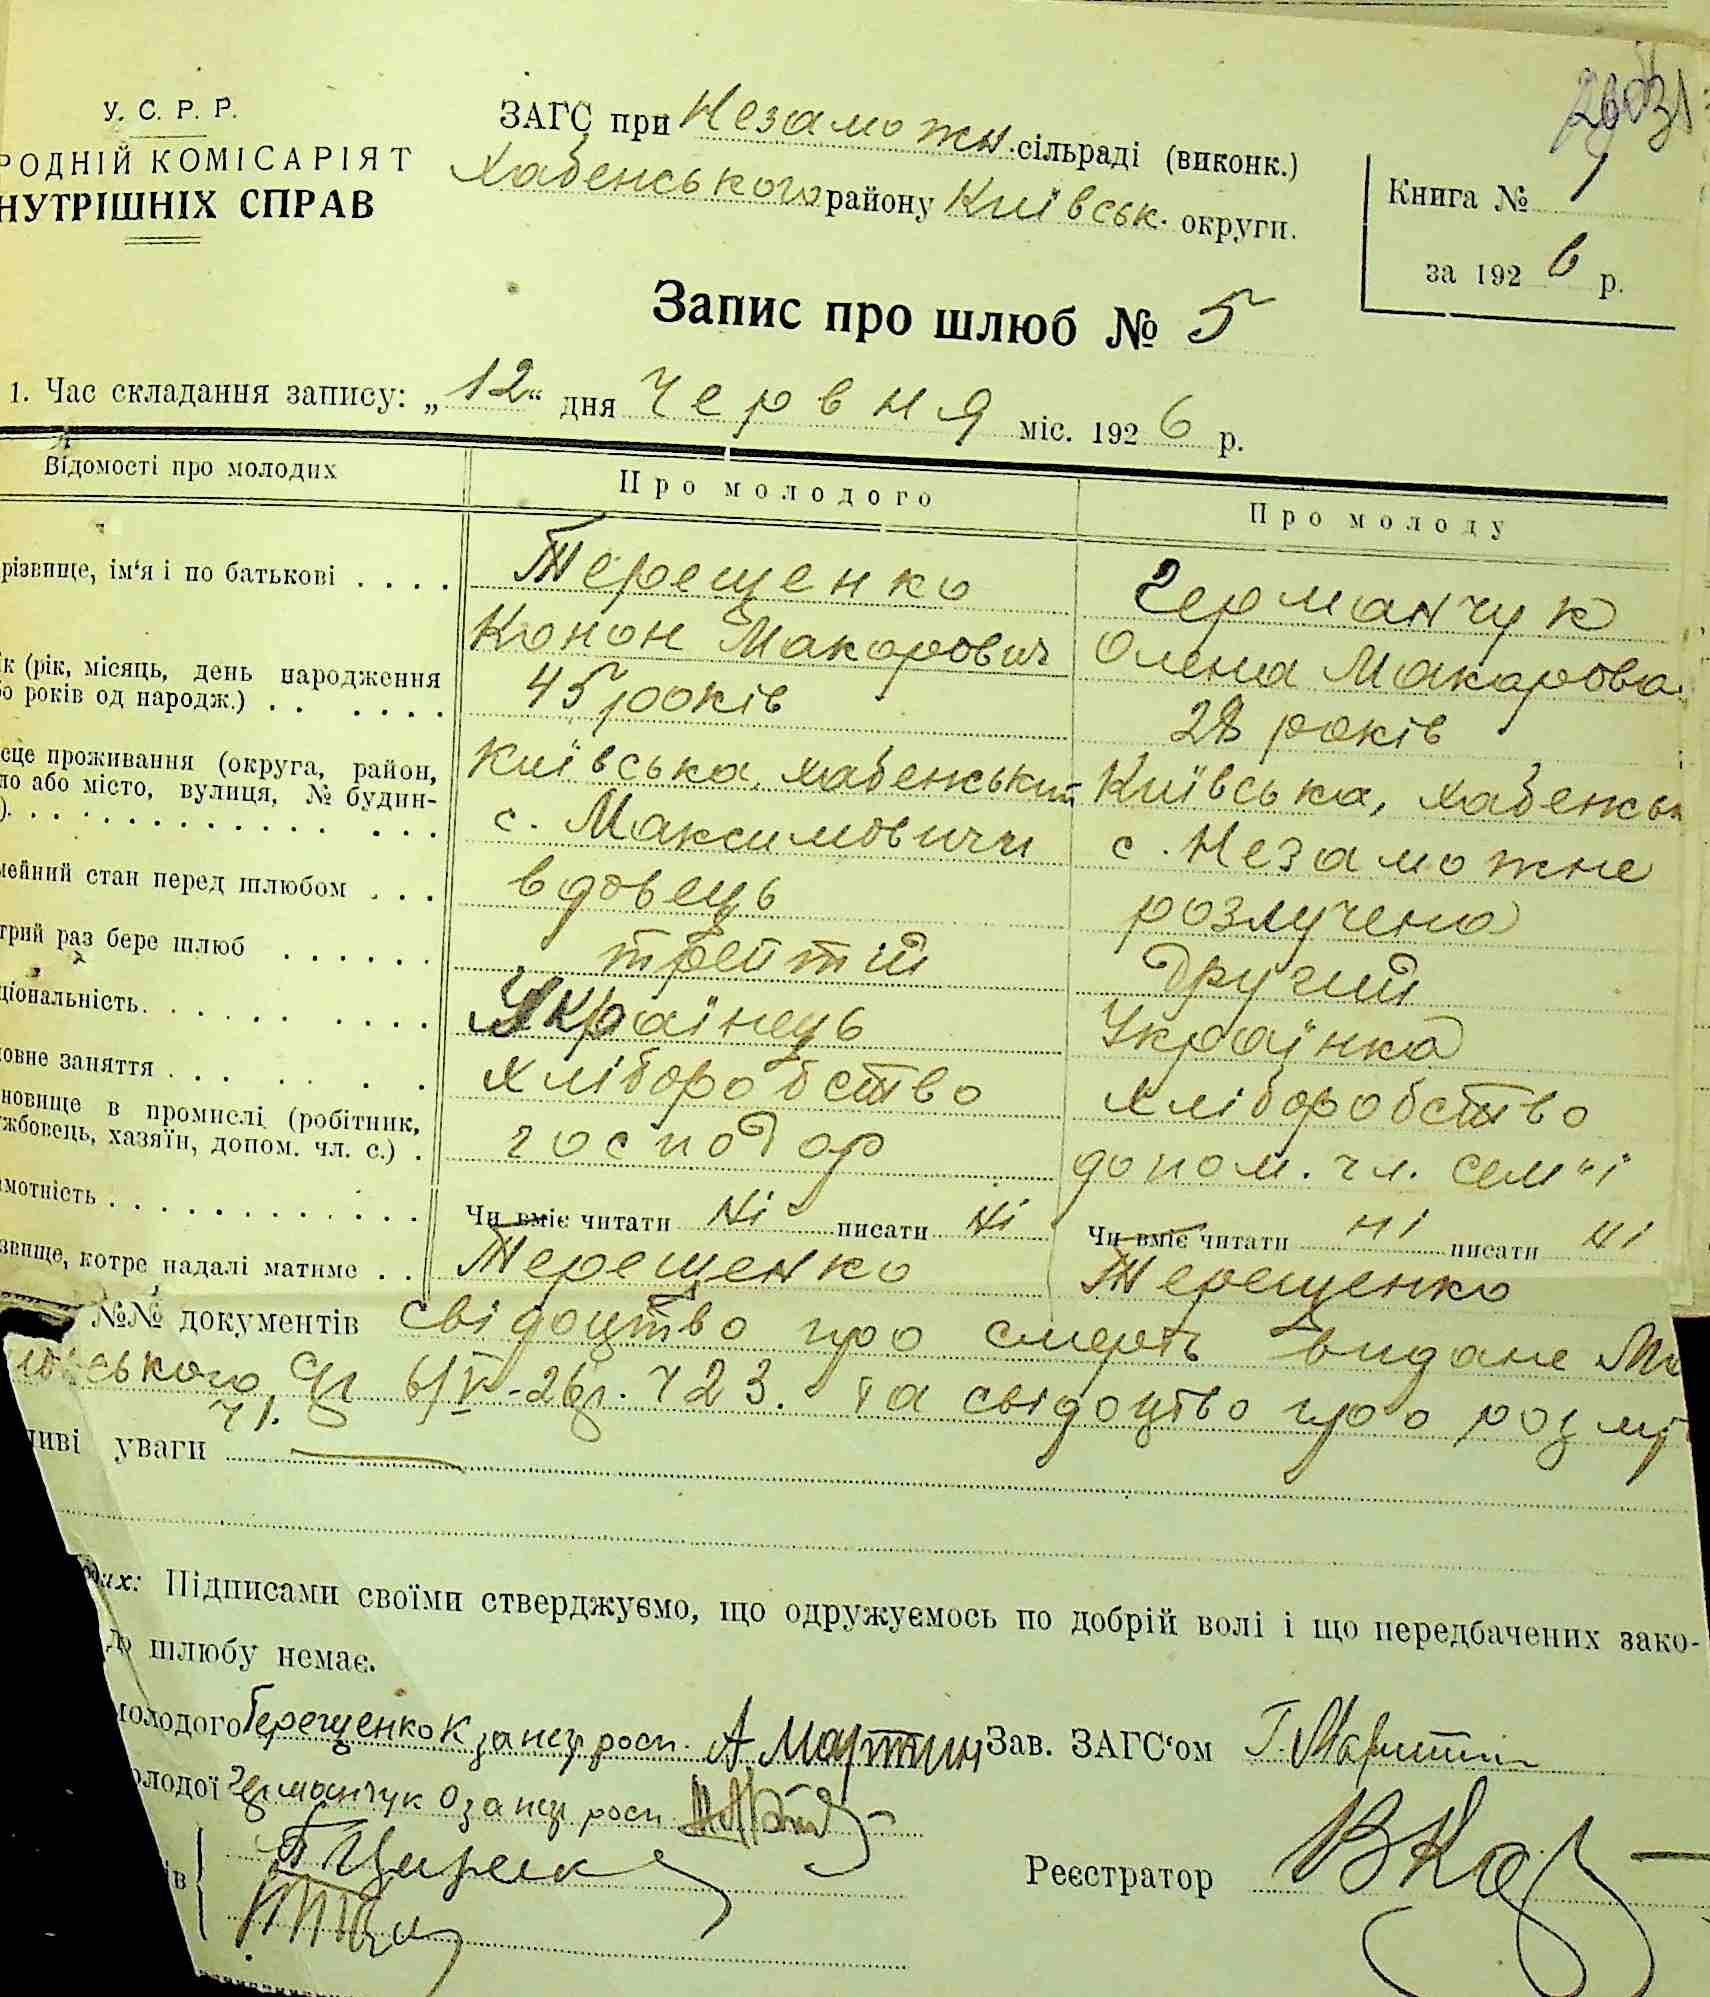 У. С. Р. Р.
РОДНІЙ КОМІСАРІЯТ
НУТРІШНІХ СПРАВ
ЗАГС при Незаможн. сільраді (виконк.)
Хабенського району Київськ. округи.
Книга № 1
за 1926 р.
Запис про шлюб № 5
1. Час складання запису: „12“ дня Червня міс. 1926 р.
Відомості про молодих Про молодого Про молоду
різвище, ім‘я і по батькові . . . . Терещенко Германчук
Конон Макарович Олена Макарова
ік (рік, місяць, день народження
о років од народж.) . . . . . . 45 років 28 років
сце проживання (округа, район, Київська, хабенський Київська, хабенськ
ло або місто, вулиця, № будин-
). . . . . . . . . . . . . . . . с. Максимовичи с. Незаможне
мейний стан перед шлюбом . . . вдовець розлучена
трий раз бере шлюб . . . . . . трейтій Другий
ціональність. . . . . . . . . . . Українець Українка
овне заняття . . . . . . . хліборобство хліборобство
новище в промислі (робітник,
жбовець, хазяїн, допом. чл. с.) . господар допом. чл. сем"ї
амотність . . . . . . . . . . . . . Чи вміє читати Ні писати Ні Чи вміє читати ні писати ні
звище, котре надалі матиме . . Терещенко Терещенко
№№ документів свідоцтво про смерть видане М
ського 6/V-26р. Ч 23. та свідоцтво про
Ч 1.
ливі уваги
их: Підписами своїми стверджуємо, що одружуємось по добрій волі і що передбачених зако-
до шлюбу немає.
молодого Терещенко К за негр росп. А Мартин Зав. ЗАГС‘ом Г. Мартин
олодої Германчук О за нег росп
в
Реєстратор